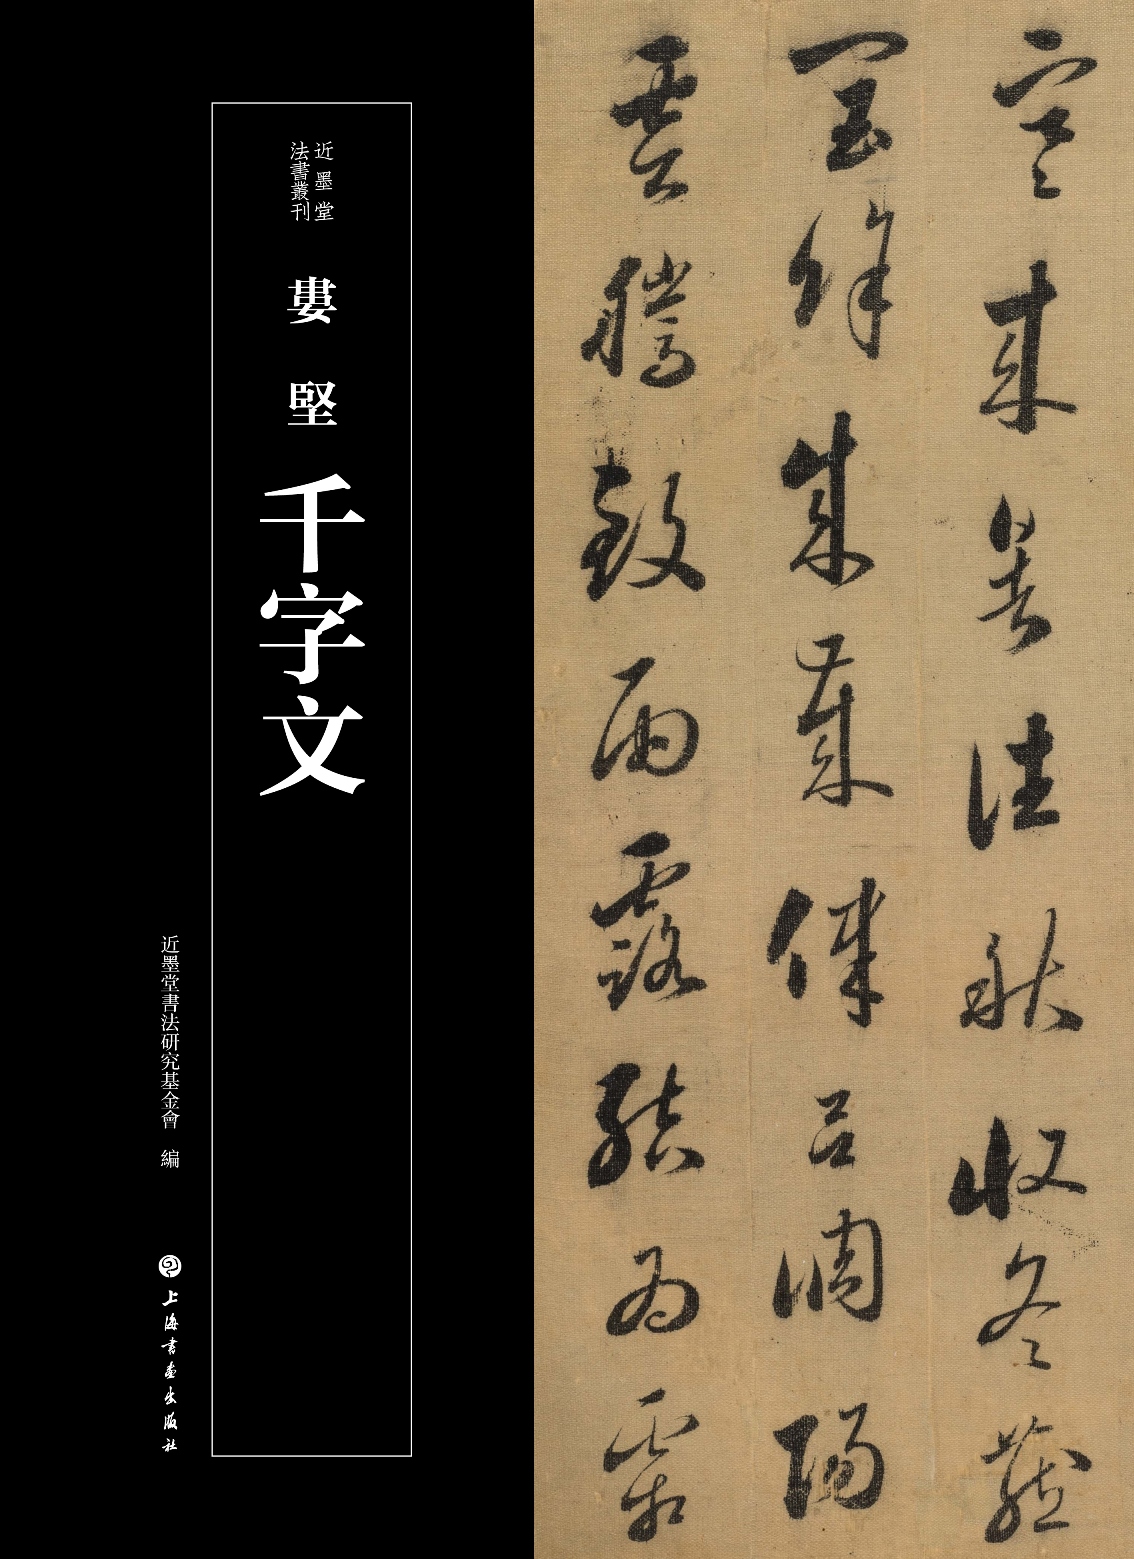 近墨堂
法書叢刊
婁堅
千字文
近墨堂書法研究基金會 編
上海書畫出版社
寒來暑往秋收冬藏
閏餘成歲律呂調陽
雲騰致雨露結為霜